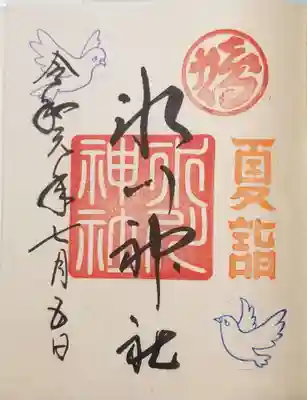 夏詣
氷川神社
氷川神社
令和元年七月五日